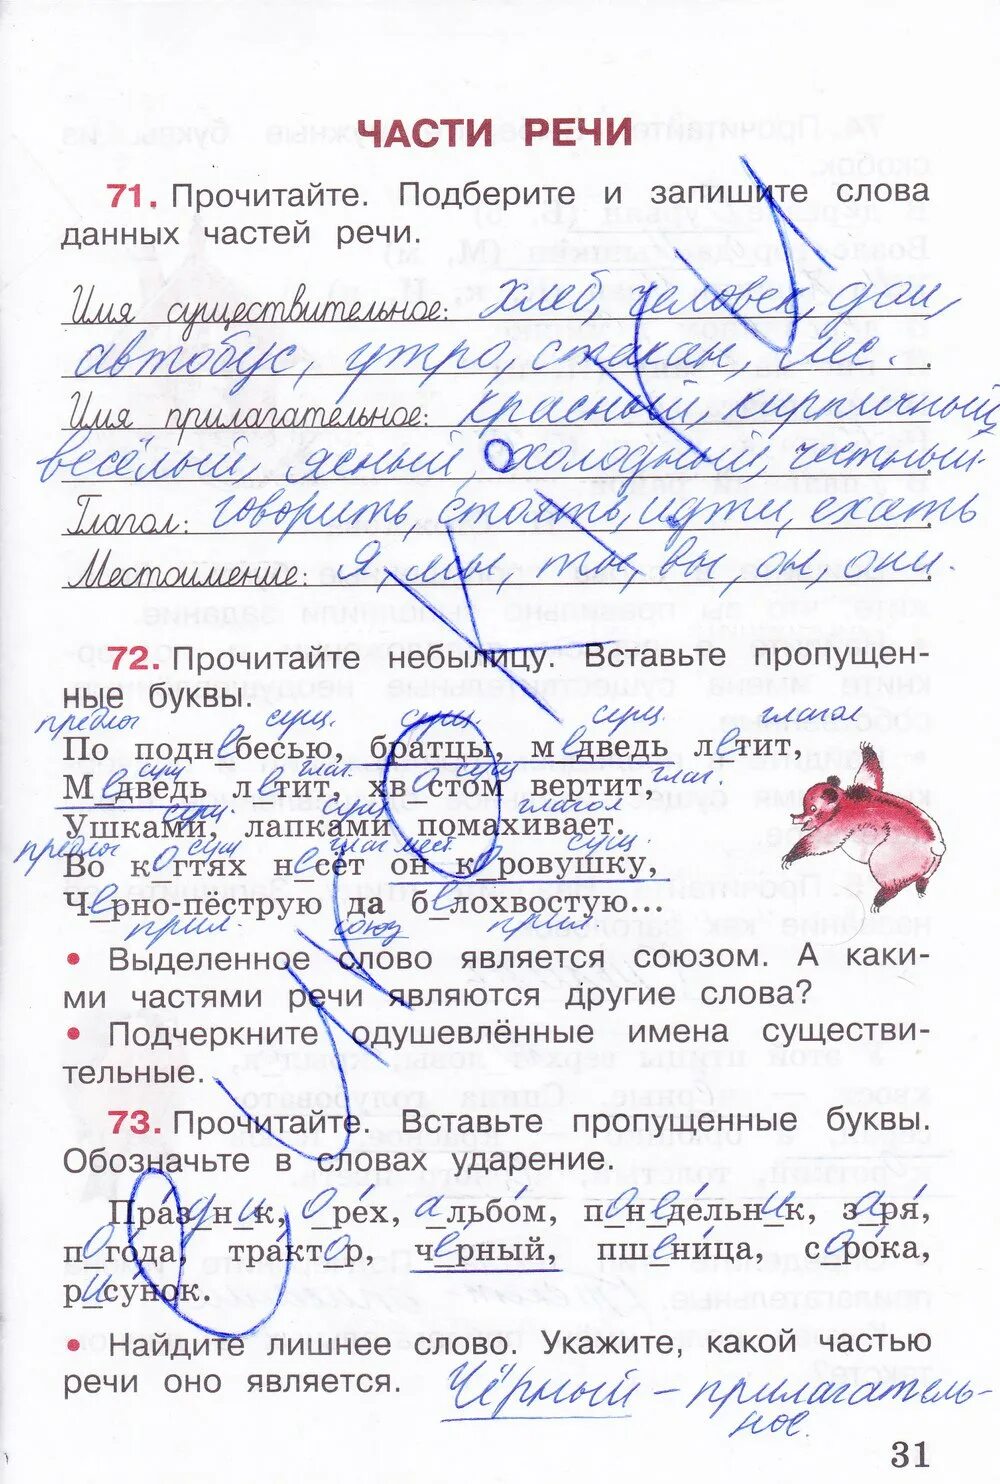 ЧАСТИ РЕЧИ
71. Прочитайте. Подберите и запишите слова
данных частей речи.
Имя существительное: хлеб, человек, дом,
автобус, утро, стакан, лес.
Имя прилагательное: красный, кирпичный,
весёлый, ясный, холодный, честный.
Глагол: говорить, стоять, идти, ехать
Местоимение: Я, мы, ты, вы, он, они.
72. Прочитайте небылицу. Вставьте пропущен-
ные буквы.
предлог сущ. сущ. сущ. глагол
По поднебесью, братцы, медведь летит,
сущ глаг. сущ глаг.
Медведь летит, хвостом вертит,
сущ. сущ. глагол
Ушками, лапками помахивает.
предлог сущ глаг мест. сущ.
Во когтях несёт он коровушку,
Чёрно-пёструю да белохвостую...
прил. союз прил
• Выделенное слово является союзом. А каки-
ми частями речи являются другие слова?
• Подчеркните одушевлённые имена существи-
тельные.
73. Прочитайте. Вставьте пропущенные буквы.
Обозначьте в словах ударение.
Пра́здник, оре́х, альбо́м, понеде́льник, заря́,
пого́да, тра́ктор, чёрный, пшени́ца, соро́ка,
рису́нок.
• Найдите лишнее слово. Укажите, какой частью
речи оно является. Чёрный – прилагатель-
ное.
31